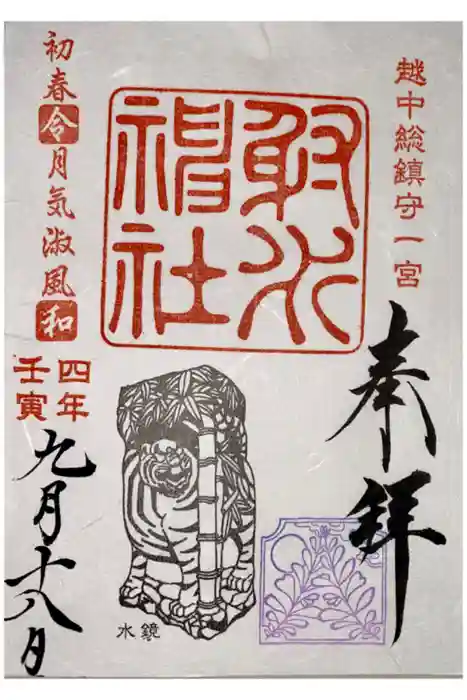 越中総鎮守一宮
奉拝
射水
神社
水鏡
初春令月気淑風和
四年
壬寅
九月十八日